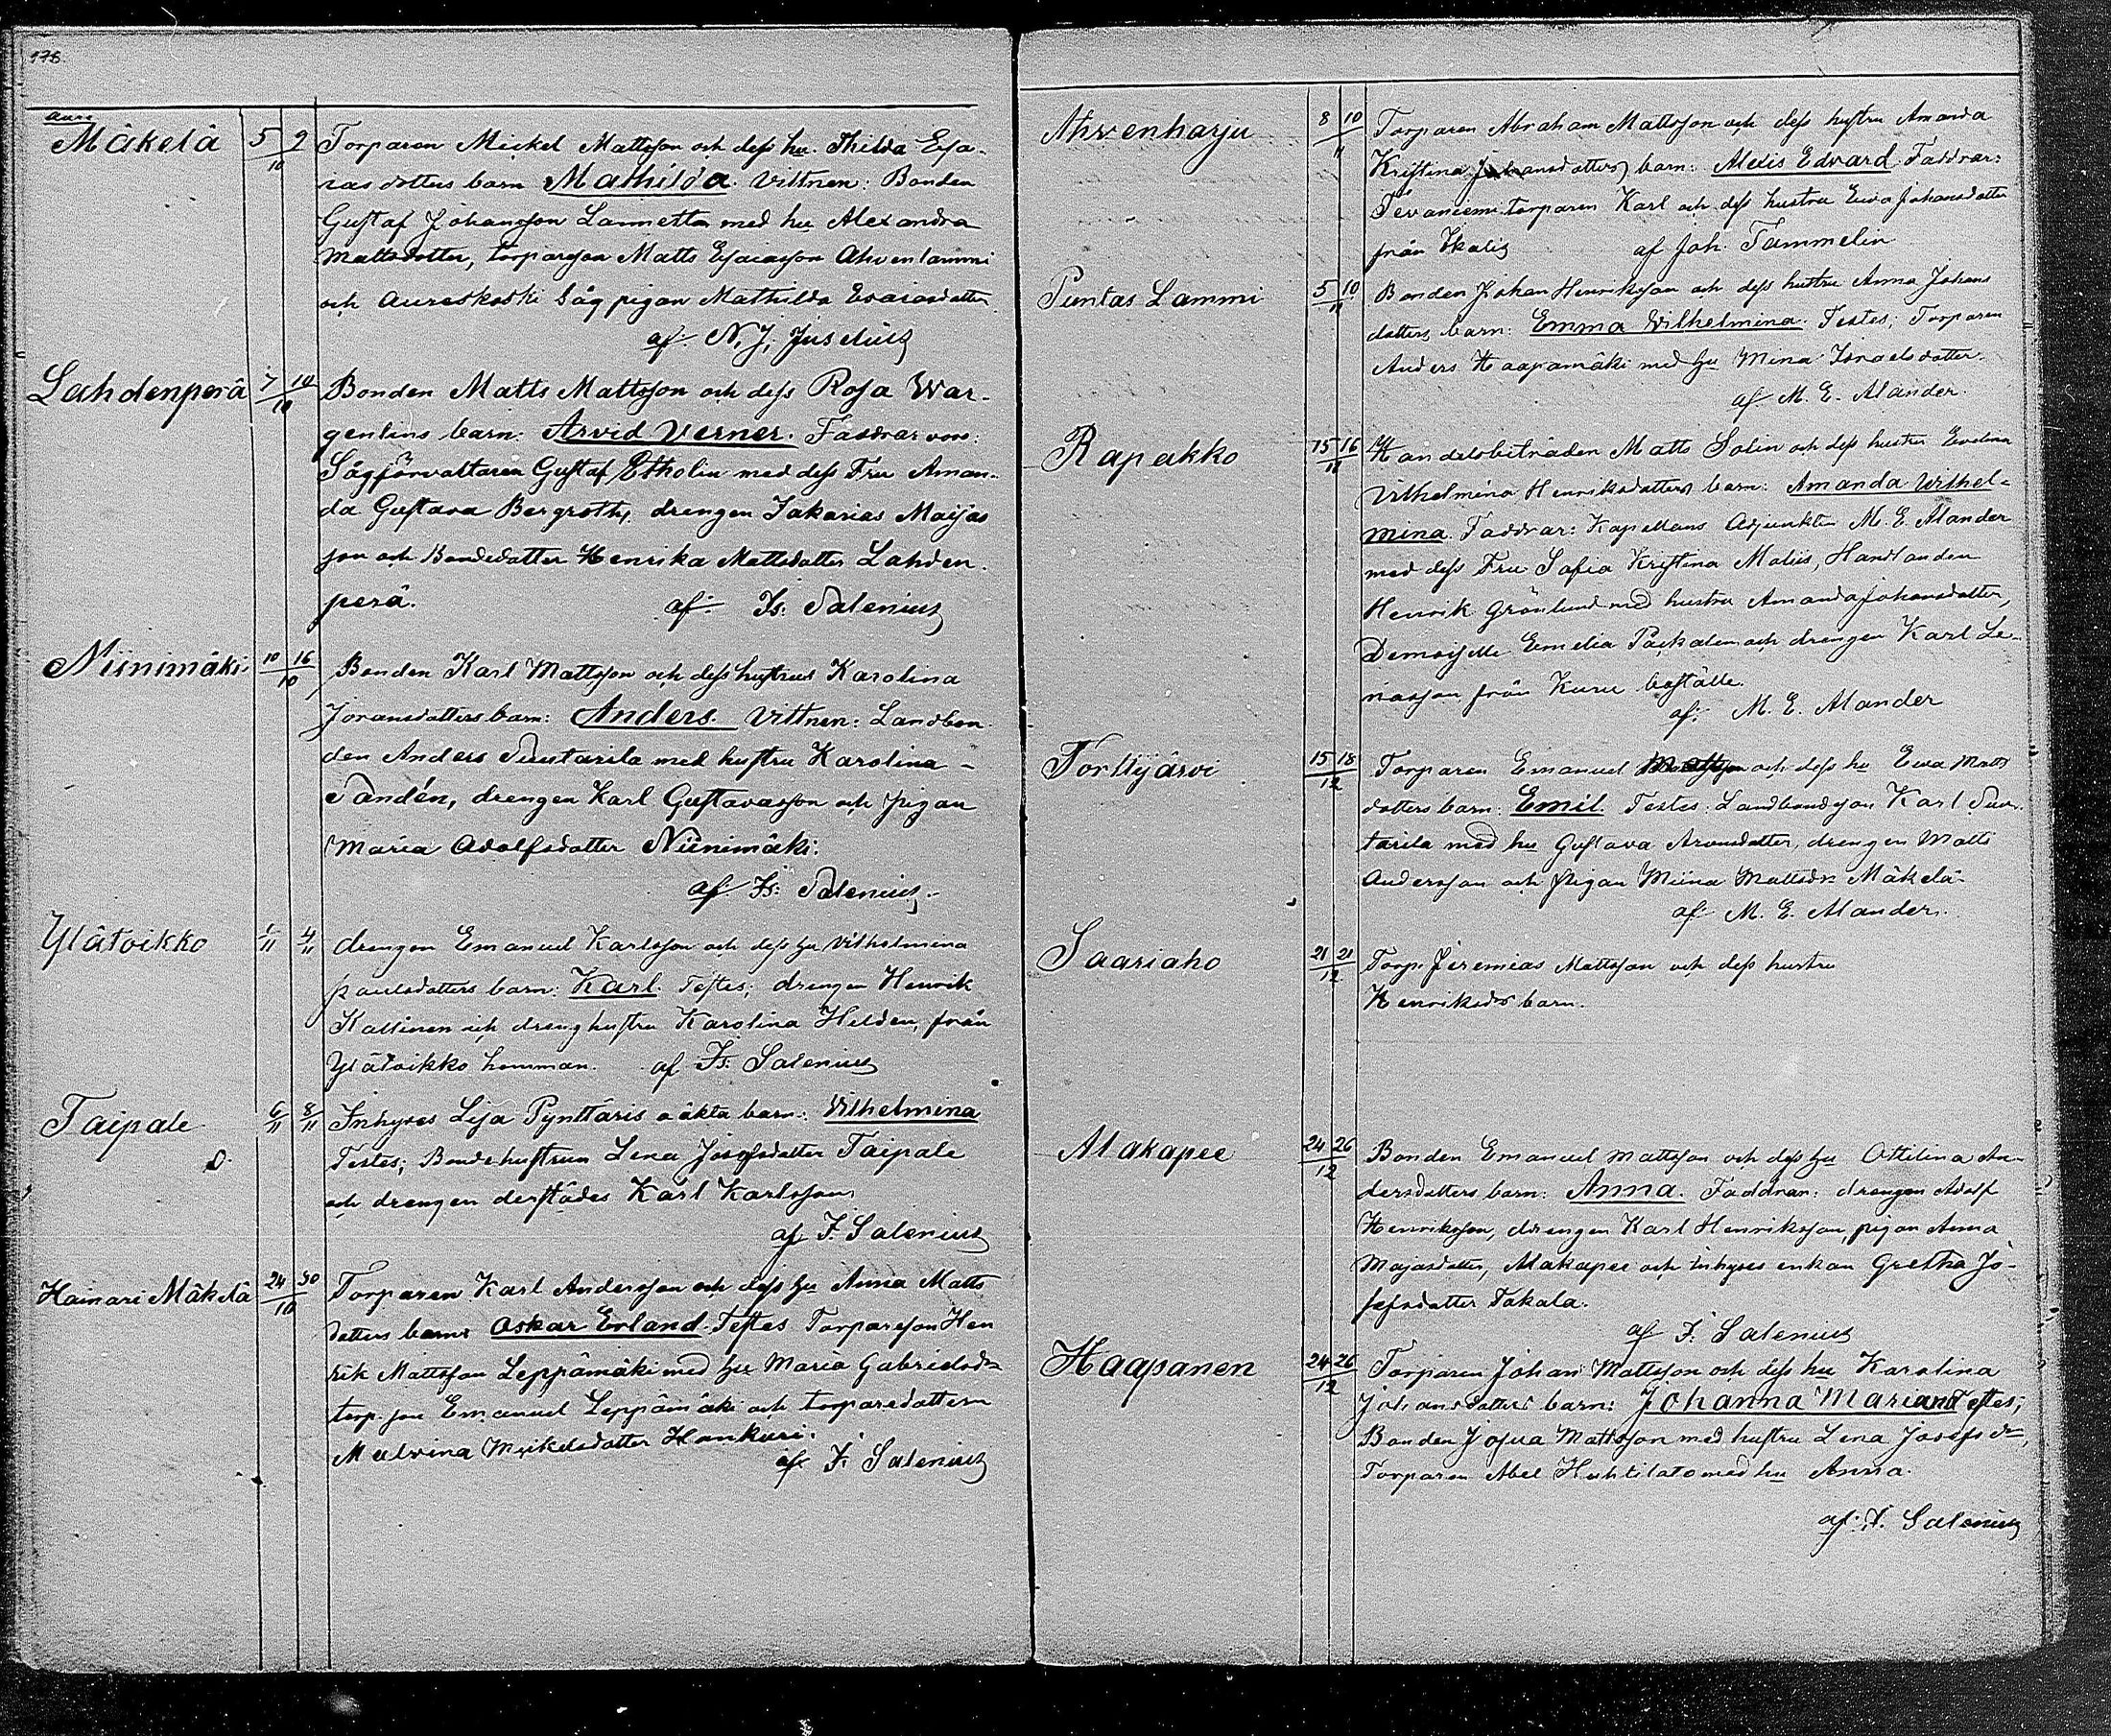 178.
Aure
Mäkelä 5 9/10 Torparen Mickel Mattsson och dess hu. Thilda Esa-
ias dotters barn Mathilda. Vittnen: Bonden
Gustaf Johansson Lannetta med hu Alexandra
Mattsdotter, torpareson Matts Esaiasson Ahvenlammi
och Aureskoski Såg pigan Mathilda Esaiasdotter
af N. J. Juselius
Lahdenperä 7 10/10 Bonden Matts Mattsson och dess Rosa War-
gentins barn: Arvid Verner. Faddrar voro:
Sågförvaltaren Gustaf Etholin med dess Fru Aman-
da Gustava Bergroth, drengen Zakarias Maijas
son och Bondedotter Henrika Mattsdotter Lahden-
perä. af Is: Salenius
Niinimäki 10 16/10 Bonden Karl Mattsson och dess hustrus Karolina
Joransdotters barn: Anders. Vittnen: Landbon-
den Anders Suutarila med hustru Karolina
Sandén, drengen Karl Gustavasson och pigan
Maria Adolfsdotter Niinimäki.
af Is: Salenius
Ylätoikko 1/11 4/11 drengen Emanuel Karlsson och dess hu Vilhelmina
Paulsdotters barn: Karl. Testes; drengen Henrik
Kallinen och dreng hustru Karolina Helden, från
Ylätoikko hemman. af Is: Salenius
Taipale 6/11 8/11 Inhyses Lisa Pynttäris oäkta barn: Vilhelmina
o. Testes; Bondehustrun Lena Josefsdotter Taipale
och drengen derstädes Karl Karlsson
af I. Salenius
Hainari Mäkelä 24 30/10 Torparen Karl Andersson och dess hu Anna Matts
dotters barn: Oskar Erland. Testes Torpareson Hen
rik Mattsson Leppämäki med hu Maria Gabrielsdr
torp. son Emanuel Leppämäki och torparedottern
Malvina Mickelsdotter Honkuri.
af I. Salenius
Ahvenharju 8 10/11 Torparen Abraham Mattsson och dess hustru Amanda
Kristina Johansdotters barn: Alexis Edvard. Faddrar:
Tevaniemi torparen Karl och dess hustru Eva Johansdotter
från Ikalis af Joh. Tammelin
Puntas Lammi 5 10/11 Bonden Johan Henriksson och dess hustru Anna Johans
dotters barn: Emma Wilhelmina. Testes; Torparen
Anders Haapamäki med hu Mina Israelsdotter.
af M. E. Alander.
Rapakko 15 16/11 Handelsbiträden Matts Solin och dess hustru Evelina
Vilhelmina Henriksdotters barn: Amanda Wilhel-
mina. Faddrar: Kapellans Adjunkten M. E. Alander
med dess Fru Sofia Kristina Moliis, Handlanden
Henrik Grönlund med hustru Amanda Johansdotter,
Demoiselle Emelia Packalen och drengen Karl Le-
nasson från Kuru
af M. E. Alander
Forttijärvi 15 18/12 Torparen Emanuel Mattsson och dess hu Eva Matts
dotters barn: Emil. Testes: Landbondeson Karl Suu-
tarila med hu Gustava Aronsdotter, drengen Matts
Andersson och pigan Miina Mattsdr Mäkelä
af M. E. Alander.
Saariaho 21 21/12 Torp. Jeremias Mattsson och dess hustru
Henriksdrs barn.
Alakapee 24 26/12 Bonden Emanuel Mattsson och dess hu Ottilina An-
dersdotters barn: Anna. Faddrar: drengen Adolf
Henriksson, drengen Karl Henriksson, pigan Anna
Majasdotter, Alakapee och inhyses enkan Gretha Jo-
sefsdotter Takala.
af I. Salenius
Haapanen 24 26/12 Torparen Johan Mattsson och dess hu Karolina
Johansdotters barn: Johanna Mariana Testes;
Bonden Josua Mattsson med hustru Lena Josefsdr,
Torparen Abel Huhtilato med hu Anna.
af I. Salenius